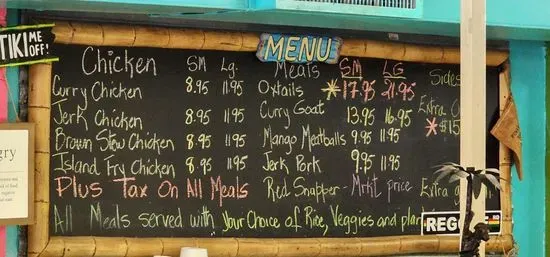 TIKI ME OFF!
MENU
Chicken SM Lg.
Curry Chicken 8.95 11.95
Jerk Chicken 8.95 11.95
Brown Stew Chicken 8.95 11.95
Island Fry Chicken 8.95 11.95
Plus Tax On All Meals
Meats SM LG
Oxtails *17.95 21.95
Curry Goat 13.95 16.95
Mango Meatballs 9.95 11.95
Jerk Pork 9.95 11.95
Red Snapper - Mrkt price
Sides
Extra
*$15
Extra
All Meals served with your Choice of Rice, Veggies and
REGG
gry